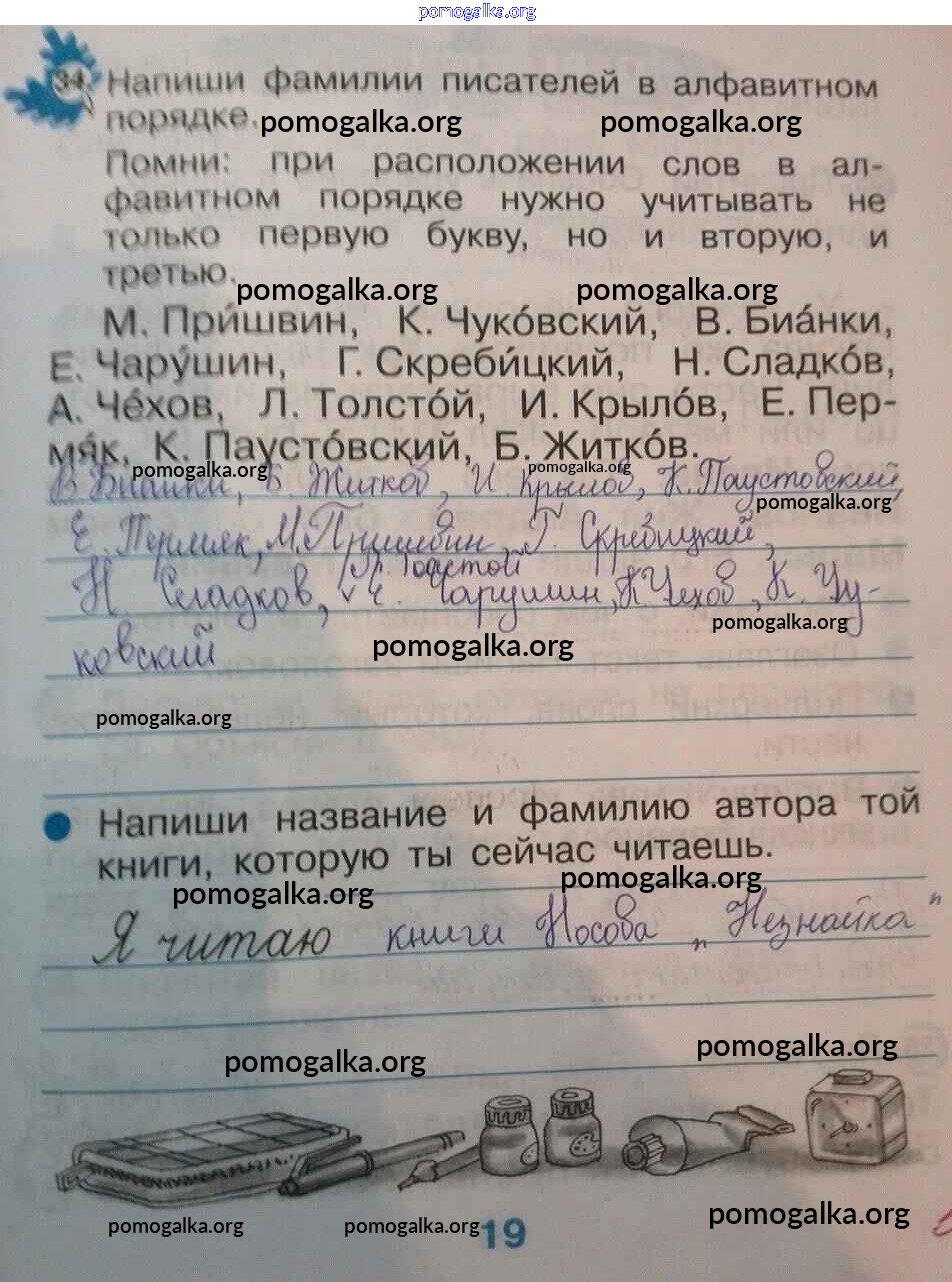 pomogalka.org
34. Напиши фамилии писателей в алфавитном
порядке.
pomogalka.org pomogalka.org
Помни: при расположении слов в ал-
фавитном порядке нужно учитывать не
только первую букву, но и вторую, и
третью.
pomogalka.org pomogalka.org
М. При́швин, К. Чуко́вский, В. Биа́нки,
Е. Чару́шин, Г. Скреби́цкий, Н. Сладко́в,
А. Че́хов, Л. Толсто́й, И. Крыло́в, Е. Пер-
мя́к, К. Паусто́вский, Б. Житко́в.
pomogalka.org pomogalka.org
В. Бианки, Б. Житков, И. Крылов, К. Паустовский,
pomogalka.org
Е. Пермяк, М. Пришвин, Г. Скребицкий,
Толстой
Н. Сладков, √ Е. Чарушин, К. Чехов, К. Чу-
pomogalka.org
ковский
pomogalka.org
pomogalka.org
Напиши название и фамилию автора той
книги, которую ты сейчас читаешь.
pomogalka.org pomogalka.org
Я читаю книги Носова „Незнайка"
pomogalka.org pomogalka.org
pomogalka.org pomogalka.org 19 pomogalka.org